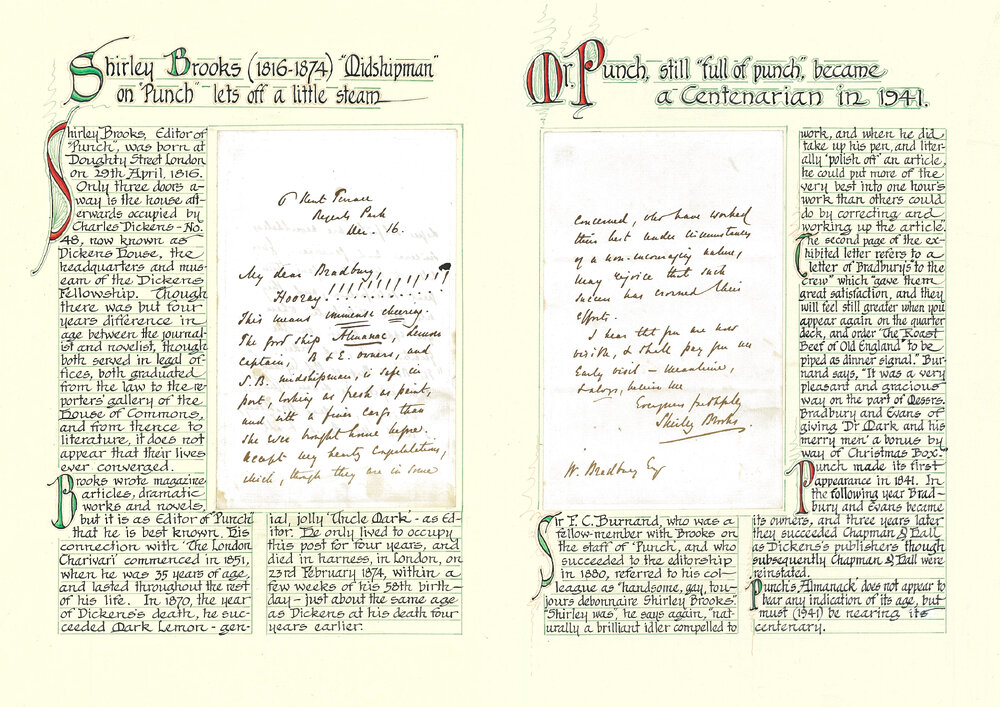 Shirley Brooks (1816-1874) "Midshipman"
on "Punch" lets off a little steam
Shirley Brooks, Editor of
"Punch", was born at
Doughty Street London
on 29th April, 1816.
Only three doors a-
way is the house aft-
erwards occupied by
Charles Dickens - No.
48, now known as
Dickens House, the
headquarters and mus-
eam of the Dickens
Fellowship. Though
there was but four
years difference in
age between the journal-
ist and novelist, though
both served in legal of-
fices, both graduated
from the law to the re-
porters' gallery of the
House of Commons,
and from thence to
literature, it does not
appear that their lives
ever converged.
Brooks wrote magazine
articles, dramatic
works and novels,
but it is as Editor of "Punch"
that he is best known. His
connection with 'The London
Charivari' commenced in 1851,
when he was 35 years of age,
and lasted throughout the rest
of his life. In 1870, the year
of Dickens's death, he suc-
ceeded Mark Lemon - gen-
ial, jolly 'Uncle Mark' - as Ed-
itor. He only lived to occupy
this post for four years, and
died in harness, in London, on
23rd February 1874, within a
few weeks of his 58th birth-
day - just about the same age
as Dickens at his death four
years earlier.
6 Kent Terrace
Regents Park
Dec. 16.
My dear Bradbury,
Hooray !!!!!!!!!!!
This means immense cheering.
The good ship Almanac, Lemon
Captain, B & E. owners, and
S.B. midshipman, is safe in
port, looking as fresh as paint,
and with a finer cargo than
she ever brought home before.
Accept my hearty congratulations,
which, though they are in some
Mr. Punch, still "full of punch", became
a Centenarian in 1941.
concerned, who have worked
their best under circumstances
of a non-encouraging nature,
may rejoice that such
success has crowned their
efforts.
I hear that you are now
visible, & shall pay you an
early visit - meantime,
& always, believe me
Ever yours faithfully
Shirley Brooks
W. Bradbury Esq
Sir F. C. Burnand, who was a
fellow-member with Brooks on
the staff of 'Punch', and who
succeeded to the editorship
in 1880, referred to his col-
league as "handsome, gay, tou-
jours debonnaire Shirley Brooks."
"Shirley was," he says again, "nat-
urally a brilliant idler compelled to
work, and when he did
take up his pen, and liter-
ally "polish off" an article,
he could put more of the
very best into one hour's
work than others could
do by correcting and
working up the article".
The second page of the ex-
hibited letter refers to a
letter of Bradbury's "to the
crew" which "gave them
great satisfaction, and they
will feel still greater when you
appear again on the quarter
deck, and order 'The Roast
Beef of Old England' to be
piped as dinner signal." Bur-
nand says, "It was a very
pleasant and gracious
way on the part of Messrs.
Bradbury and Evans of
giving Dr Mark and his
merry men' a bonus by
way of Christmas Box."
Punch made its first
appearance in 1841. In
the following year Brad-
bury and Evans became
its owners, and three years later
they succeeded Chapman & Hall
as Dickens's publishers though
subsequently Chapman & Hall were
reinstated.
Punch's Almanack does not appear to
bear any indication of its age, but
must (1941) be nearing its
centenary.